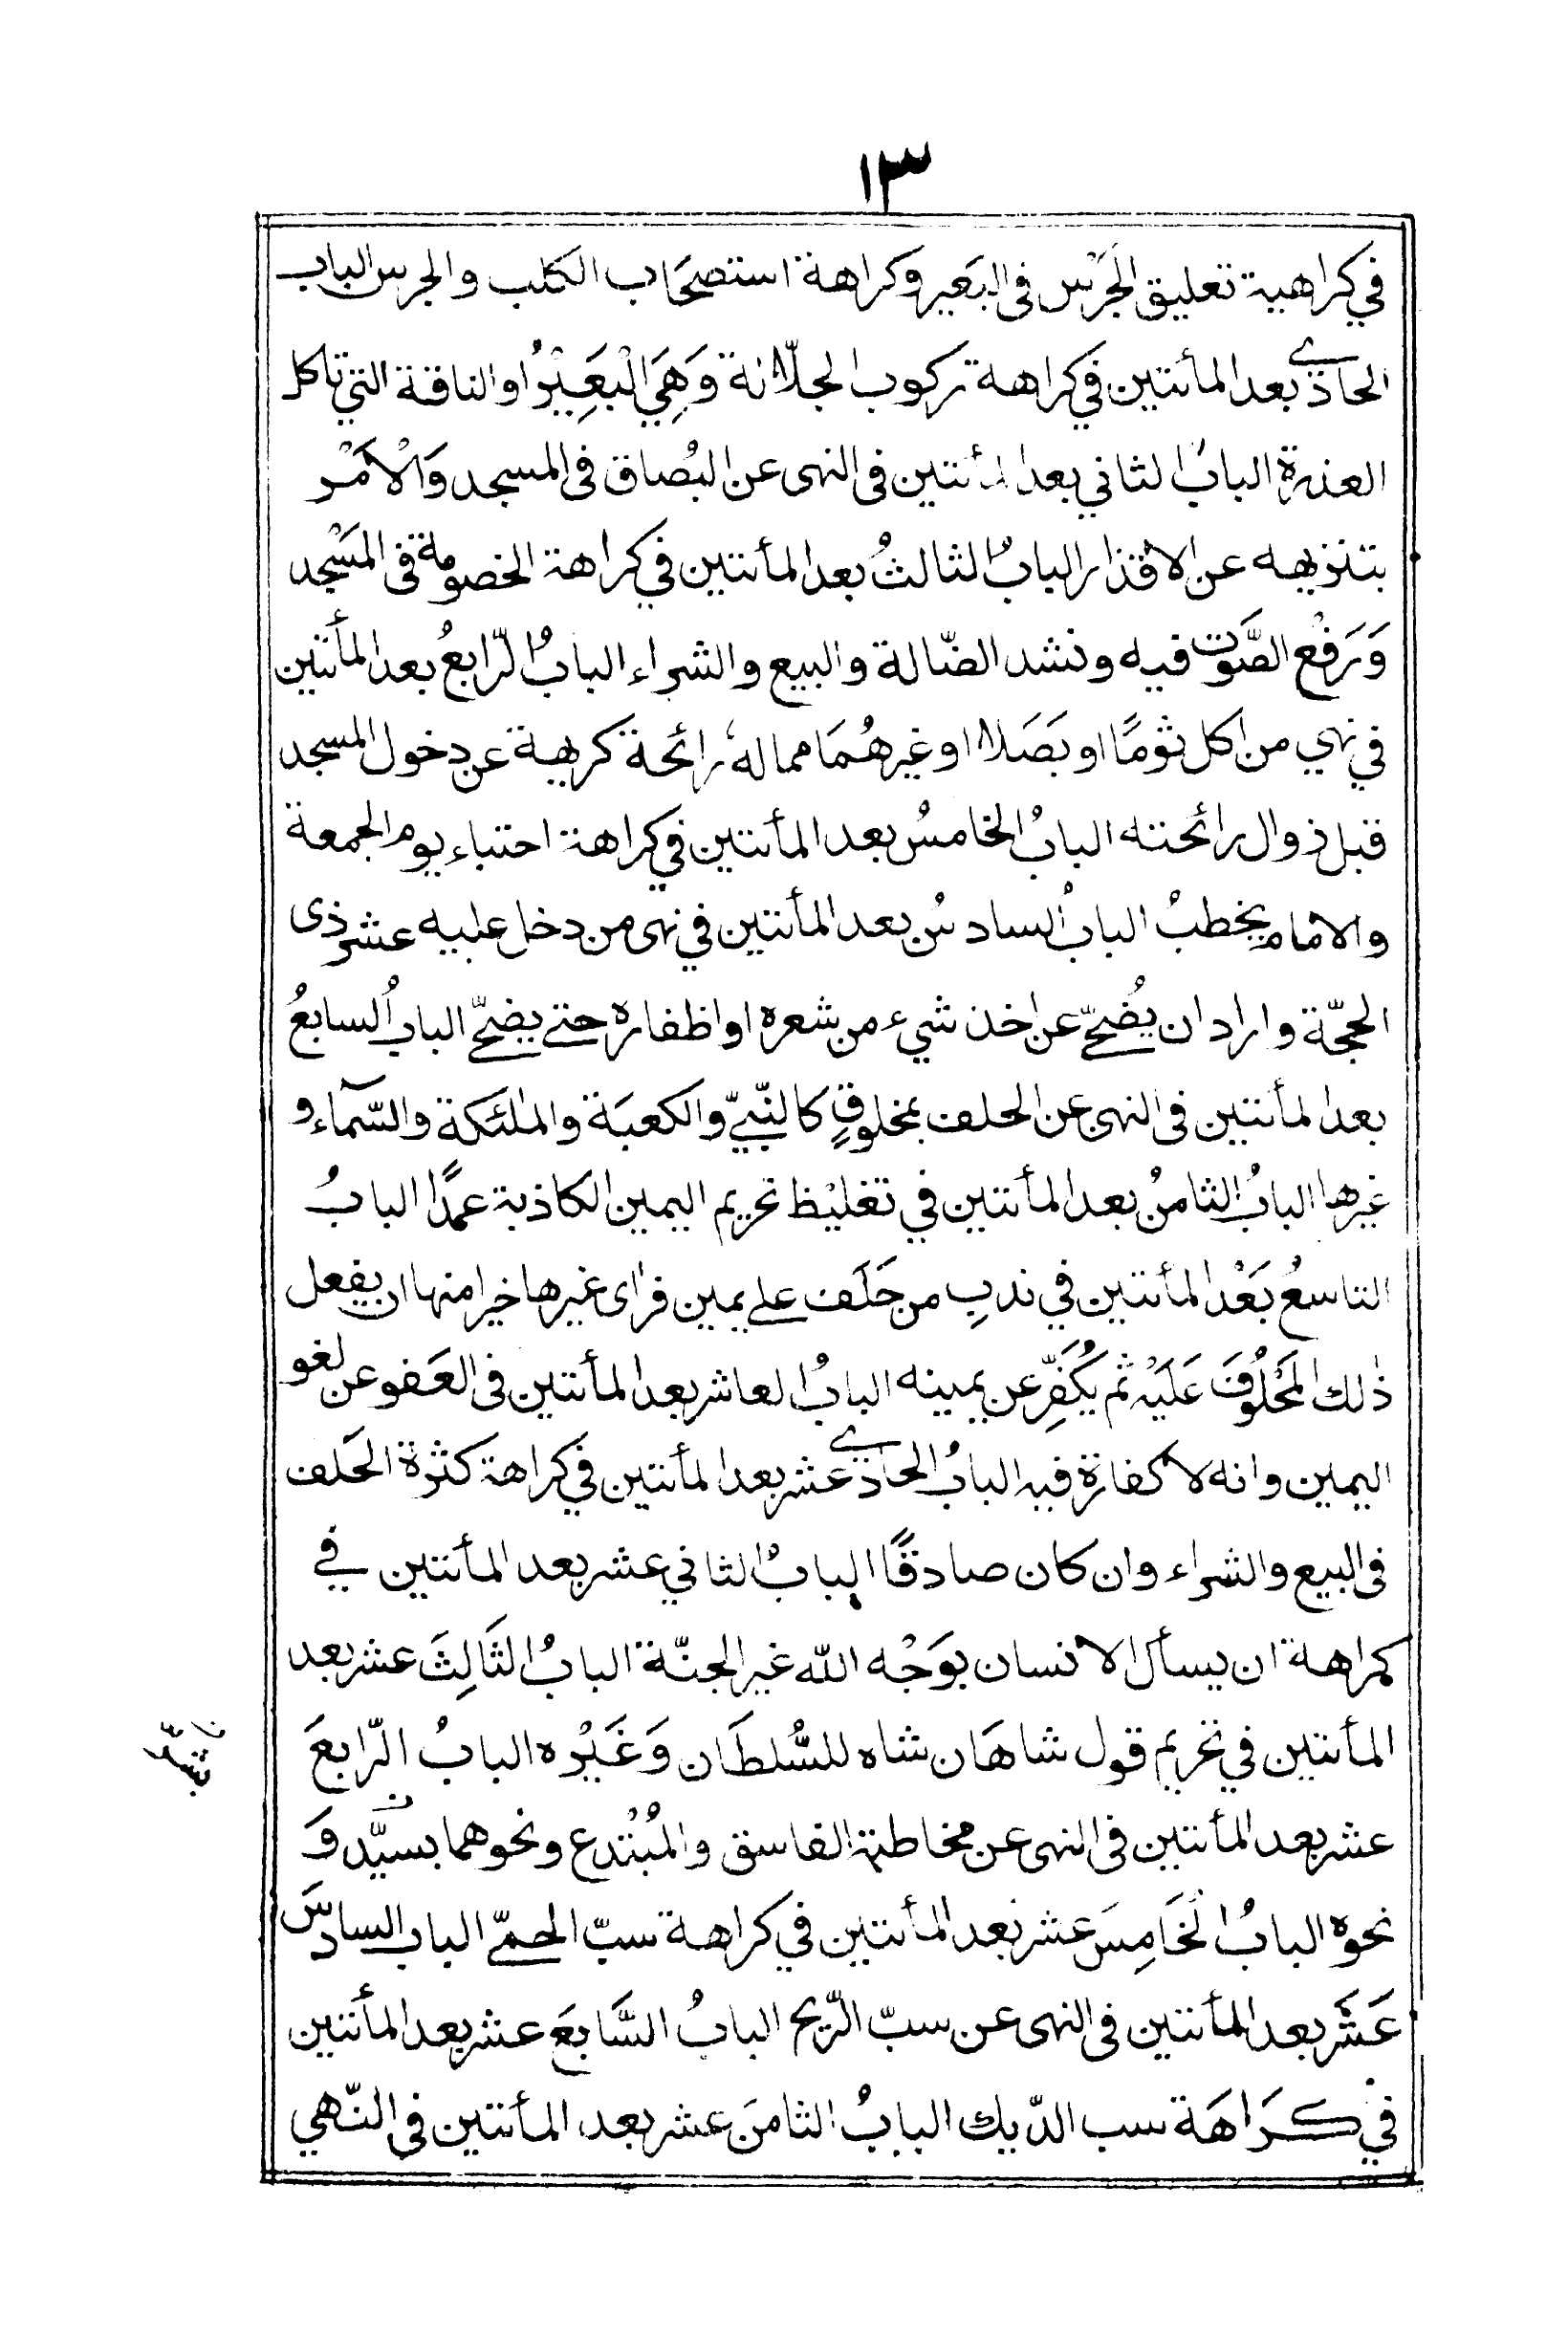 ١٣
في كراهية تعليق الجَرَس فى البَعير وكراهة استصحَاب الكلب والجرس الباب
الحادي بعد المأتين في كراهة ركوب الجلّالة وَهِيَ الْبَعِيْرُ او الناقة التي تاكل
العذرة البابُ الثاني بعد المأتين فى النهى عن البُصاق فى المسجد وَالْاَمْر
بتنزيهه عن الاقذار البابُ الثالثُ بعد المأتين في كراهة الخصومة فى المَسْجد
وَرَفْع الصَّوت فيه ونشد الضّالة والبيع والشراء البابُ الرّابعُ بعد المأتين
في نهي من اكل ثومًا او بَصَلا او غيرهُمَا مما له رائحة كريهة عن دخول المسجد
قبل زوال رائحته البابُ الخامسُ بعد المأتين في كراهة احتباء يوم الجمعة
والامام يخطبُ البابُ السادسُ بعد المأتين في نهى من دخل عليه عشر ذى
الحجّة واراد ان يُضحّي عن اخذ شيء من شعره او اظفاره حتى يضحّي البابُ السابعُ
بعد المأتين فى النهى عن الحلف بمخلوقٍ كالنّبيّ والكعبَة والملئكة والسّمآء و
غيرها البابُ الثامنُ بعد المأتين في تغليْظ تحريم اليمين الكاذبة عمدًا البابُ
التاسعُ بَعْد المأتين في ندبِ من حَلَف على يمين فراى غيرها خيرا منها ان يفعل
ذٰلك المَحْلُوفَ عَلَيْه ثم يُكَفِّر عن يمينه البابُ العاشر بعد المأتين فى العَفو عن لغو
اليمين وانه لا كفارة فيه البابُ الحادي عشر بعد المأتين في كراهة كثرة الحَلف
فى البيع والشراء وان كان صادقًا البابُ الثاني عشر بعد المأتين في
كراهة ان يسأل الانسان بوَجْه الله غير الجنّة البابُ الثَالِثَ عشر بعد
المأتين في تحريم قول شاهَان شاه للسُّلطَان وَغَيْره البابُ الرّابعَ
عشر بعد المأتين فى النهى عن مخاطبة الفاسق والمُبْتدع ونحوهما بسيّد وَ
نحوه البابُ الخَامِسَ عشر بعد المأتين في كراهة سبّ الحمّى الباب السادسَ
عَشَر بعد المأتين فى النهى عن سبّ الرّيح البابُ السَّابعَ عشر بعد المأتين
في كَرَاهَة سب الدّيك البابُ الثامنَ عشر بعد المأتين فى النّهي